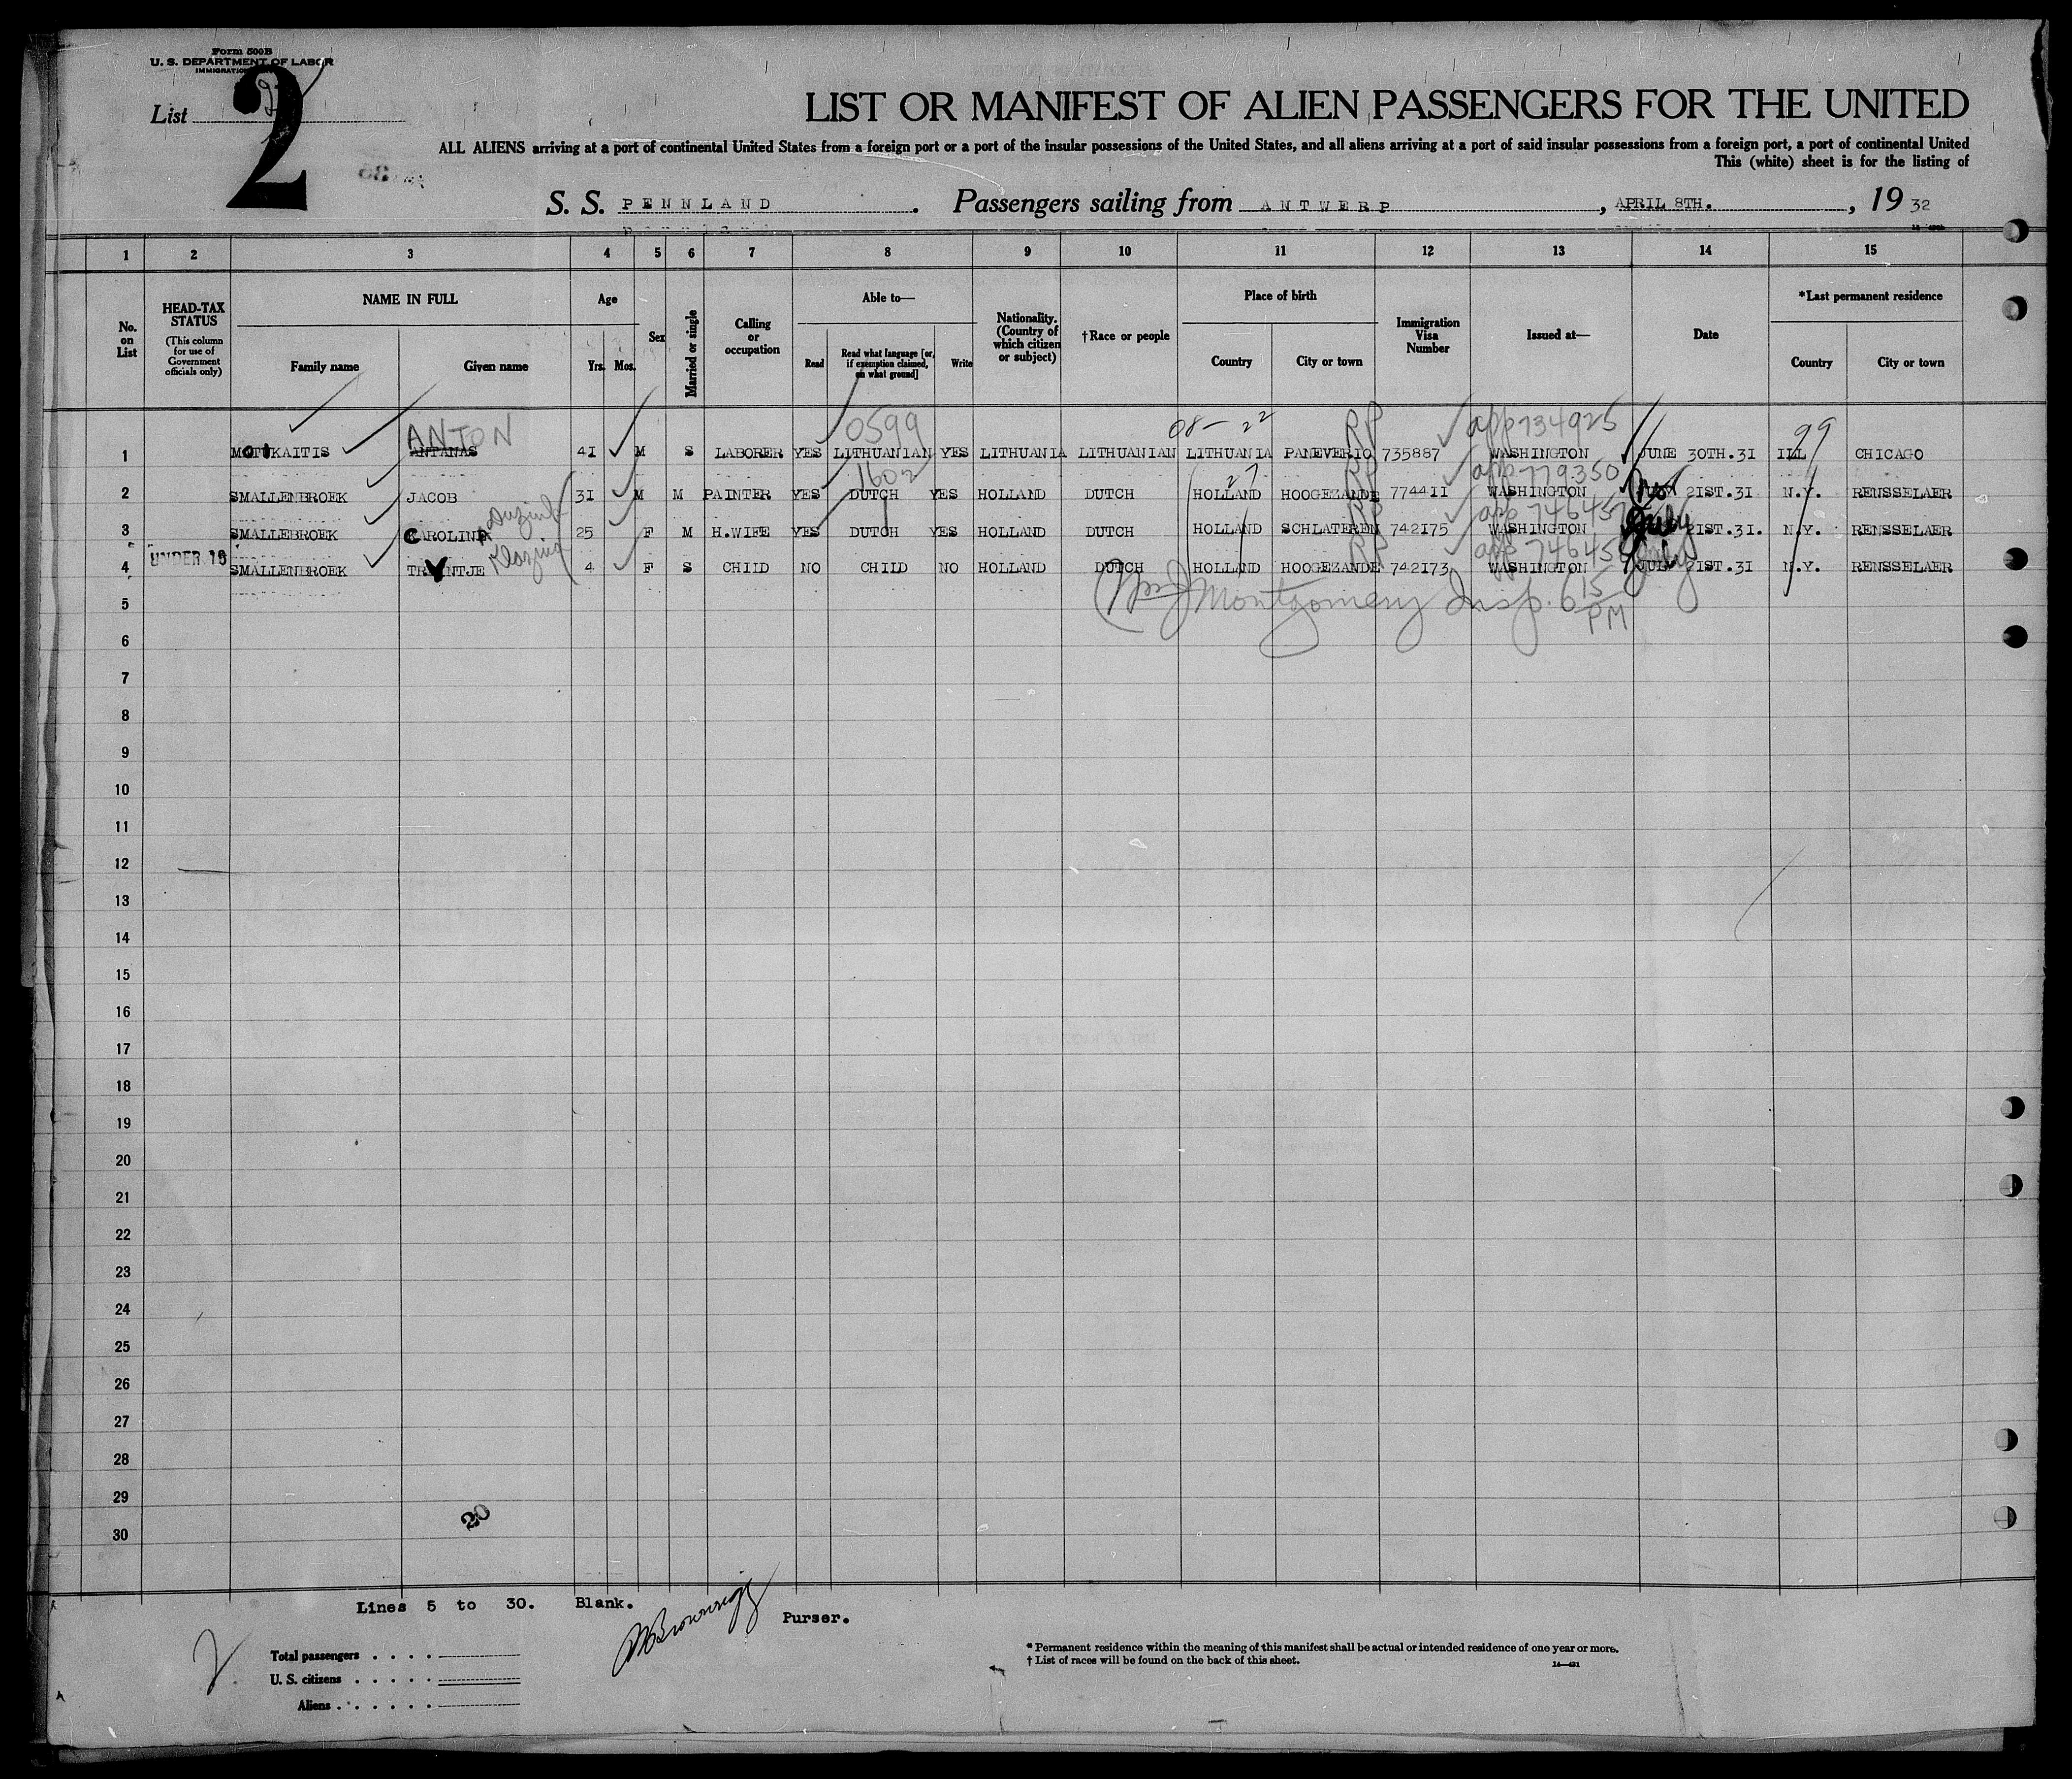 Form 500B
U. S. DEPARTMENT OF LABOR
IMMIGRATION
List 2
LIST OR MANIFEST OF ALIEN PASSENGERS FOR THE UNITED
ALL ALIENS arriving at a port of continental United States from a foreign port or a port of the insular possessions of the United States, and all aliens arriving at a port of said insular possessions from a foreign port, a port of continental United
This (white) sheet is for the listing of
S. S. PENNLAND. Passengers sailing from ANTWERP, APRIL 8TH., 19 32
1 2 3 4 5 6 7 8 9 10 11 12 13 14 15
No. on List
HEAD-TAX STATUS
(This column for use of Government officials only)
NAME IN FULL
Family name Given name
Age
Yrs. Mos.
Sex
Married or single
Calling or occupation
Able to—
Read
Read what language [or, if exemption claimed, on what ground]
Write
Nationality. (Country of which citizen or subject)
†Race or people
Place of birth
Country City or town
Immigration Visa Number
Issued at—
Date
*Last permanent residence
Country City or town
ANTON 0599 08- 22 RP app 734925 99
1 KAITIS ANTANAS 41 M S LABORER YES LITHUANIAN YES LITHUANIA LITHUANIAN LITHUANIA PANEVERIO 735887 WASHINGTON JUNE 30TH.31 ILL CHICAGO
1602 27 RP app 779350
2 SMALLENBROEK JACOB 31 M M PAINTER YES DUTCH YES HOLLAND DUTCH HOLLAND HOOGEZANDE 774411 WASHINGTON 21ST.31 N.Y. RENSSELAER
RP app 746457
3 SMALLEBROEK CAROLINA 25 F M H.WIFE YES DUTCH YES HOLLAND DUTCH HOLLAND SCHLATEREN 742175 WASHINGTON July 21ST.31. N.Y. RENSSELAER
UNDER 16 Klazina RP app 746456 July
4 SMALLENBROEK TRYNTJE 4 F S CHILD NO CHILD NO HOLLAND DUTCH HOLLAND HOOGEZANDE 742173 WASHINGTON 21ST.31 N.Y. RENSSELAER
Wm J Montgomery Insp. 6 15 PM
5
6
7
8
9
10
11
12
13
14
15
16
17
18
19
20
21
22
23
24
25
26
27
28
29
30
20
Lines 5 to 30. Blank. Purser.
2
Total passengers
U. S. citizens
Aliens
* Permanent residence within the meaning of this manifest shall be actual or intended residence of one year or more.
† List of races will be found on the back of this sheet.